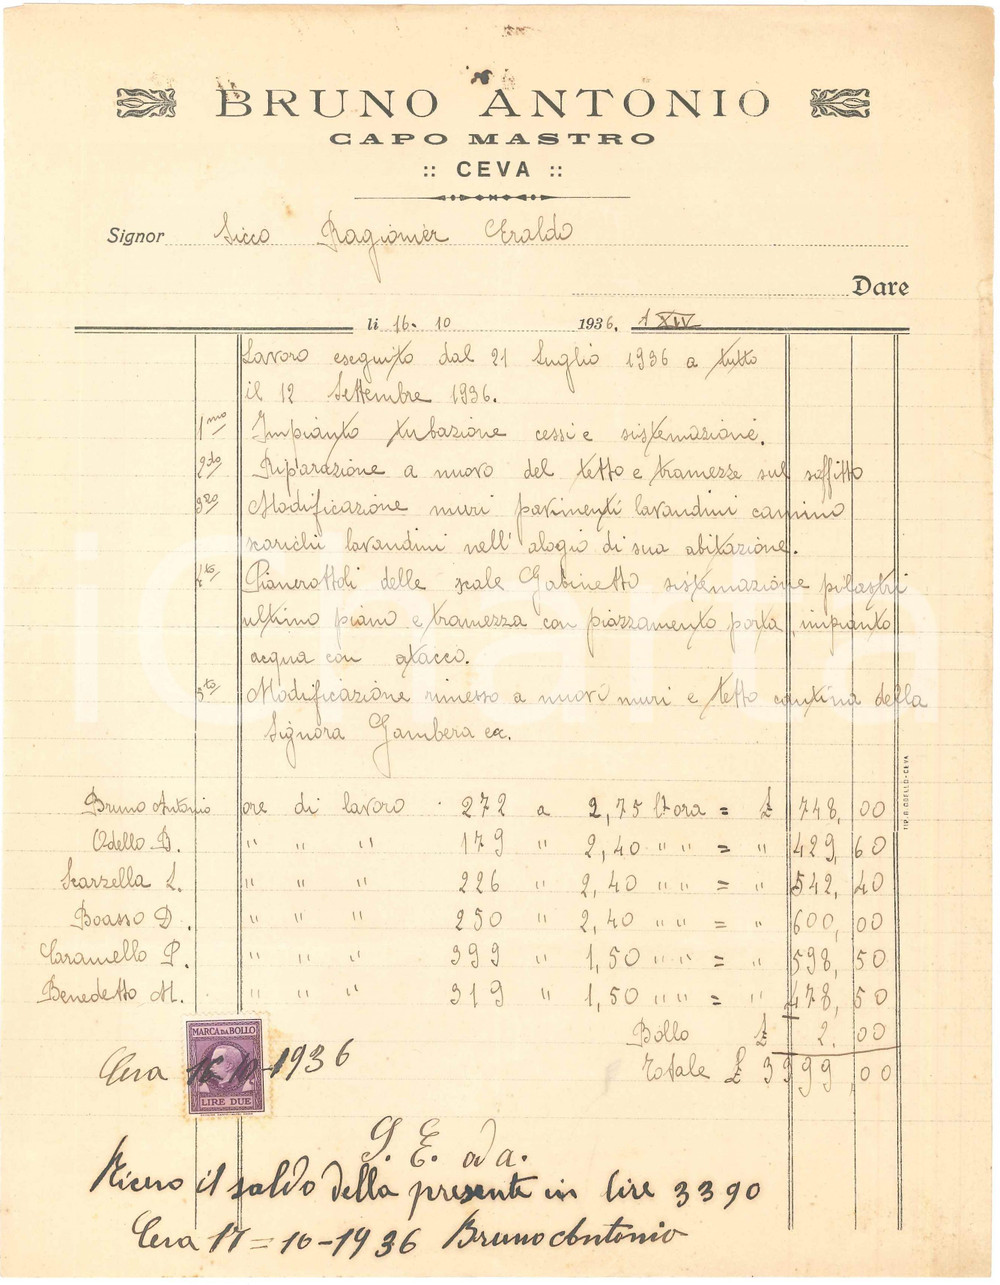 BRUNO ANTONIO
CAPO MASTRO
:: CEVA ::
Signor Sicco Ragionier Eraldo
Dare
li 16. 10 1936. A XIV
Lavoro eseguito dal 21 Luglio 1936 a tutto
il 12 Settembre 1936.
1mo Impianto tubazione cessi e sistemazione.
2do Riparazione a nuovo del tetto e tramezze sul soffitto
3zo Modificazione muri pavimenti lavandini camino
scarichi lavandini nell' alogio di sua abitazione.
4to Pianerottoli delle scale Gabinetto sistemazione pilastri
ultimo piano e tramezza con piazzamento porta, impianto
acqua con atacco.
5to Modificazione rimesso a nuovi muri e tetto cantina della
Signora Gambera ec.
Bruno Antonio ore di lavoro 272 a 2,75 l'ora = £ 748,00
Odello B. " " " 179 " 2,40 " " = " 429,60
Scarzella L. " " " 226 " 2,40 " " = " 542,40
Boasso D. " " " 250 " 2,40 " " = " 600,00
Caramello P. " " " 399 " 1,50 " " = " 598,50
Benedetto M. " " " 319 " 1,50 " " = " 478,50
Bollo £ 2.00
Totale £ 3399,00
TIP. G. ODELLO-CEVA
MARCA DA BOLLO
LIRE DUE
Ceva 16 10-1936
S. E. ad a.
Ricevo il saldo della presente in lire 3390
Ceva 17=10-1936 Bruno Antonio
iCharta